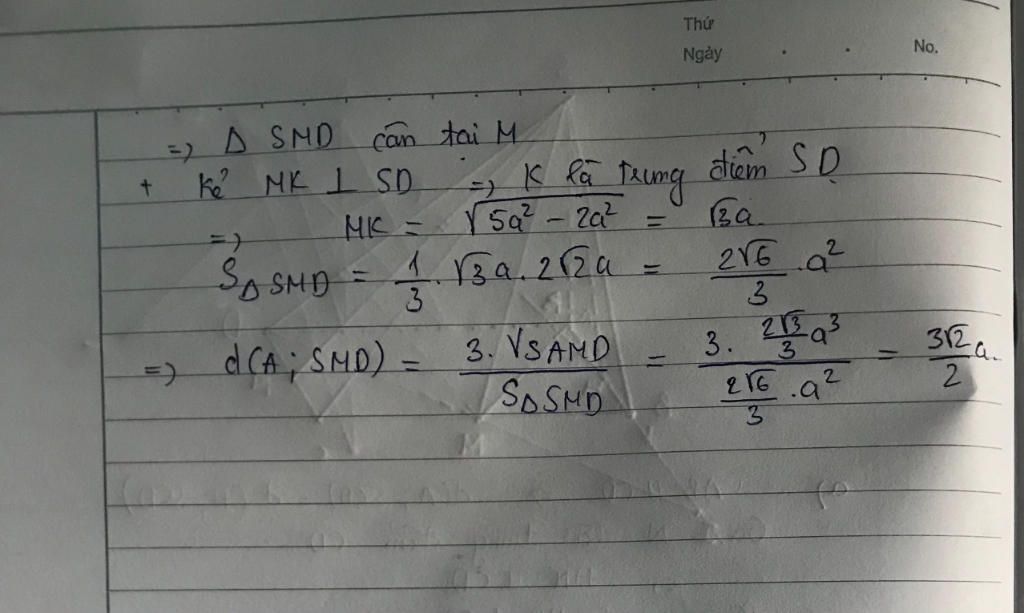 Thứ
Ngày No.
=> Δ SMD cân tại M
+ Kẻ MK ⊥ SD => K là trung điểm SD
=> MK = √(5a² - 2a²) = √3a
SΔSMD = 1/3 . √3a . 2√2a = 2√6/3 . a²
=> d(A; SMD) = 3.VSAMD / SΔSMD = (3. 2√3/3 a³) / (2√6/3 . a²) = 3√2/2 a.